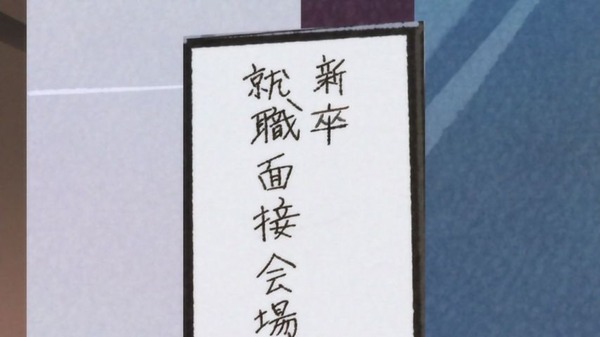 新卒
就職面接会場